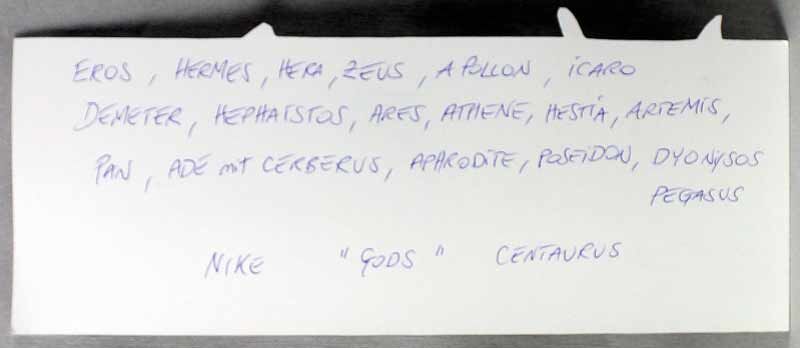 EROS, HERMES, HERA, ZEUS, APOLLON, iCARO
DEMETER, HEPHAISTOS, ARES, ATHENE, HESTIA, ARTEMIS,
PAN, ADE mit CERBERUS, APHRODITE, POSEIDON, DYONYSOS
PEGASUS
NIKE "GODS" CENTAURUS